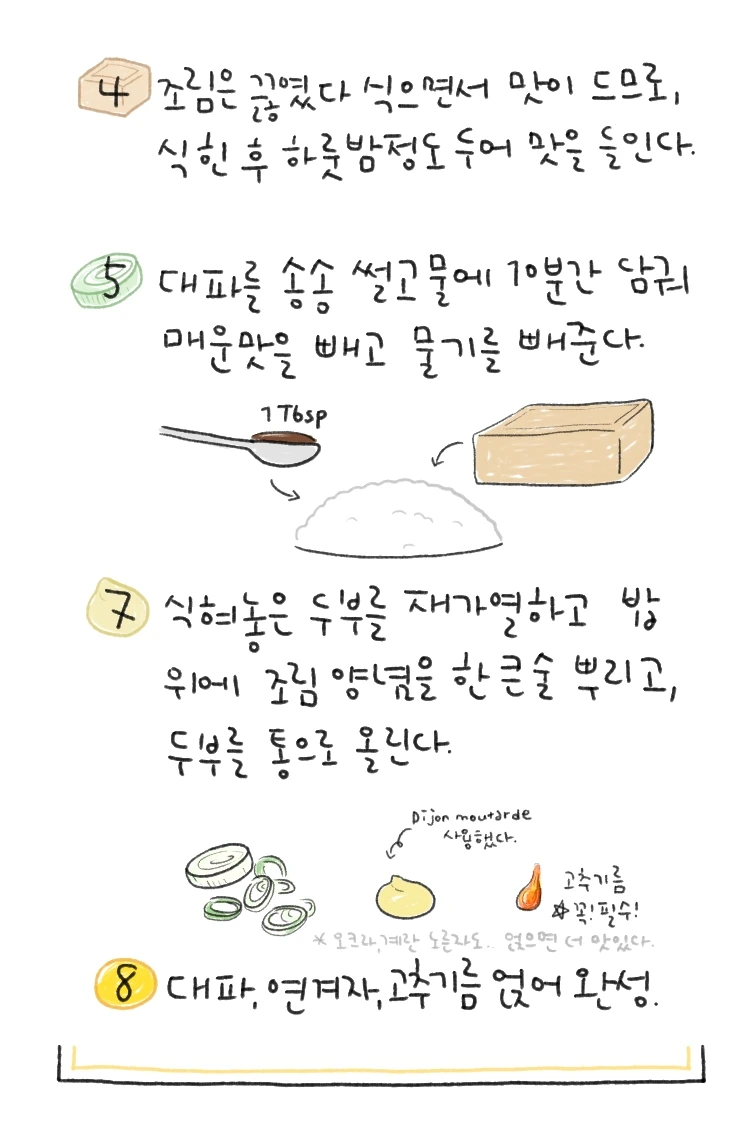 4 조림은 끓였다 식으면서 맛이 드므로,
식힌 후 하룻밤정도 두어 맛을 들인다.
5 대파를 송송 썰고물에 10분간 담궈
매운맛을 빼고 물기를 빼준다.
1 Tbsp
7 식혀놓은 두부를 재가열하고 밥
위에 조림 양념을 한 큰술 뿌리고,
두부를 통으로 올린다.
Dijon moutarde
사용했다.
고추기름
☆ 꼭! 필수!
* 오크라, 계란 노른자도.. 얹으면 더 맛있다.
8 대파, 연겨자, 고추기름 얹어 완성.